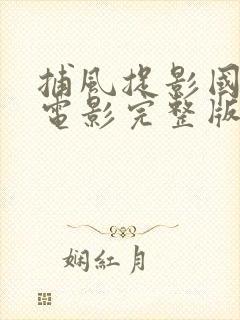 捕風捉影國
電影完整版
娴紅月